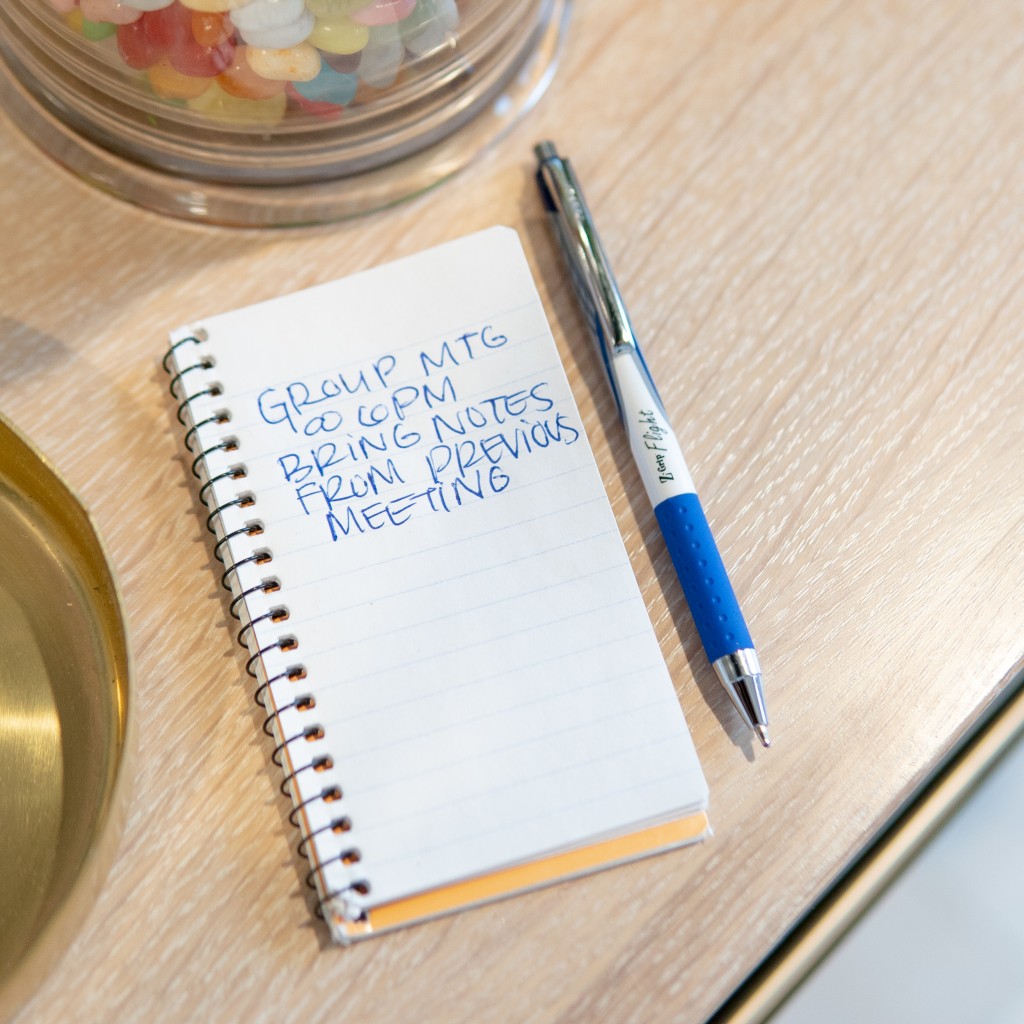 GROUP MTG
6PM
BRING NOTES
FROM PREVIOUS
MEETING
Z-Grip Flight